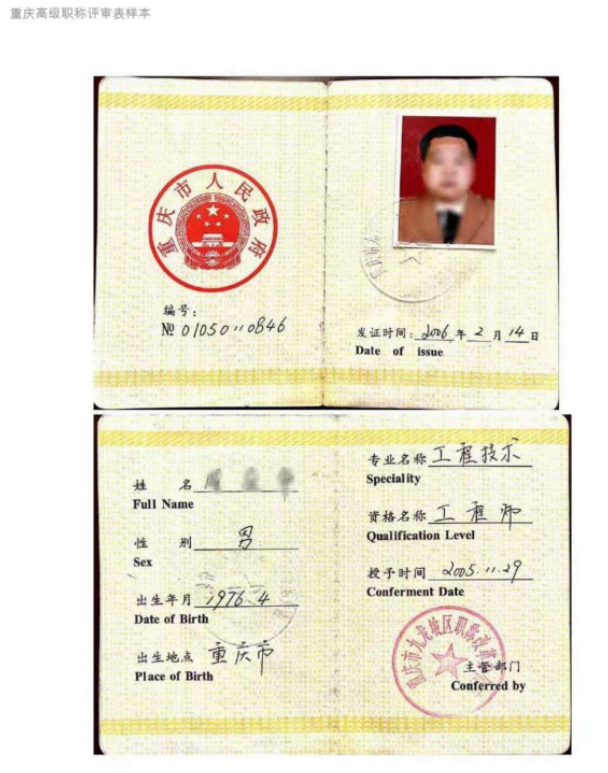 重庆高级职称评审表样本
重庆市人民政府
编号:
№ 01050110846
发证时间: 2006 年 2 月 14 日
Date of issue
姓 名
Full Name
性 别 男
Sex
出生年月 1976.4
Date of Birth
出生地点 重庆市
Place of Birth
专业名称 工程技术
Speciality
资格名称 工程师
Qualification Level
授予时间 2005.11.29
Conferment Date
重庆市九龙坡区职称改革
主管部门
Conferred by